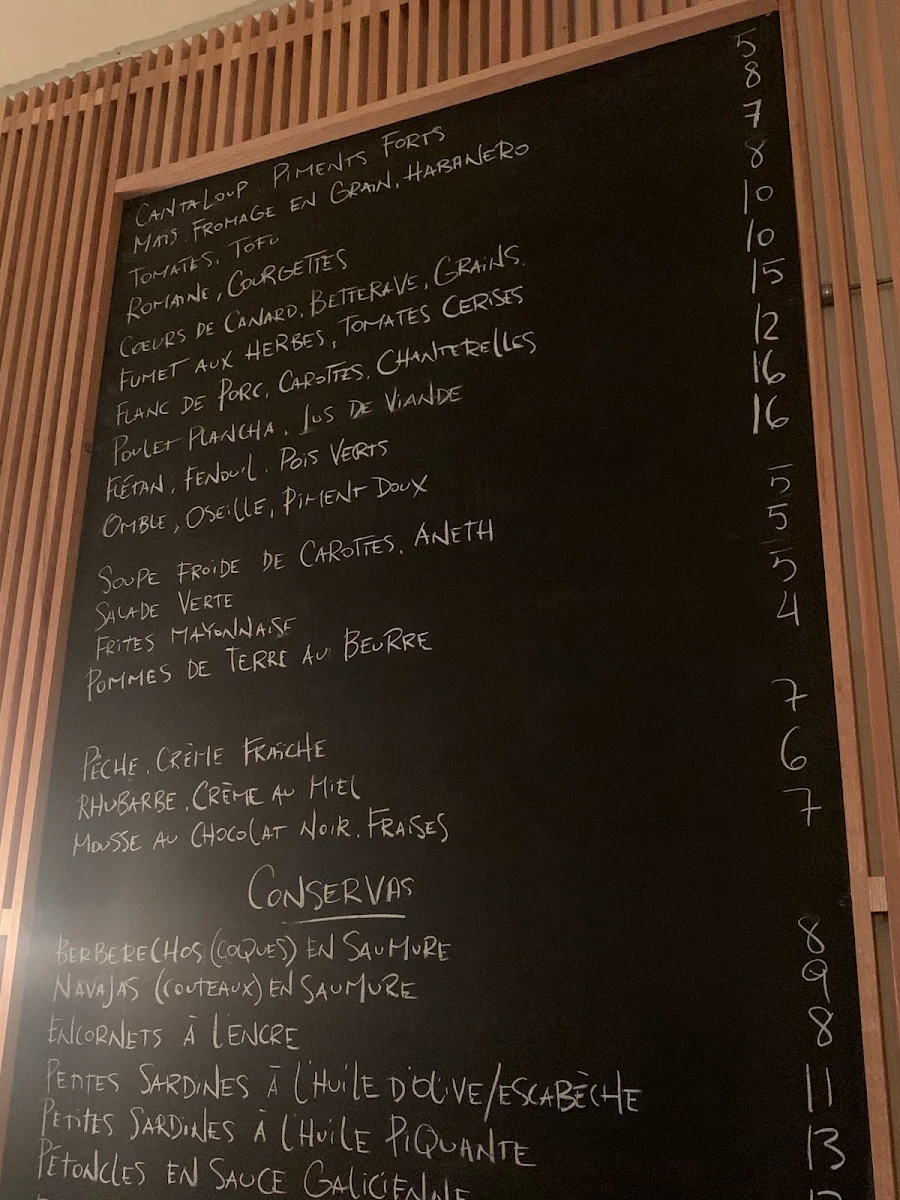 CANTALOUP PIMENTS FORTS 5
MAÏS. FROMAGE EN GRAIN. HABANERO 8
TOMATES, TOFU 7
ROMAINE, COURGETTES 8
CŒURS DE CANARD, BETTERAVE, GRAINS. 10
FUMET AUX HERBES, TOMATES CERISES 10
FLANC DE PORC, CAROTTES, CHANTERELLES 15
POULET PLANCHA, JUS DE VIANDE 12
FLÉTAN, FENOUIL, POIS VERTS 16
OMBLE, OSEILLE, PIMENT DOUX 16
SOUPE FROIDE DE CAROTTES, ANETH 5
SALADE VERTE 5
FRITES MAYONNAISE 5
POMMES DE TERRE AU BEURRE 4
PÊCHE, CRÈME FRAÎCHE 7
RHUBARBE, CRÈME AU MIEL 6
MOUSSE AU CHOCOLAT NOIR. FRAISES 7
CONSERVAS
BERBERECHOS (COQUES) EN SAUMURE 8
NAVAJAS (COUTEAUX) EN SAUMURE 9
ENCORNETS À L'ENCRE 8
PETITES SARDINES À L'HUILE D'OLIVE/ESCABÈCHE 11
PETITES SARDINES À L'HUILE PIQUANTE 13
PÉTONCLES EN SAUCE GALICIENNE